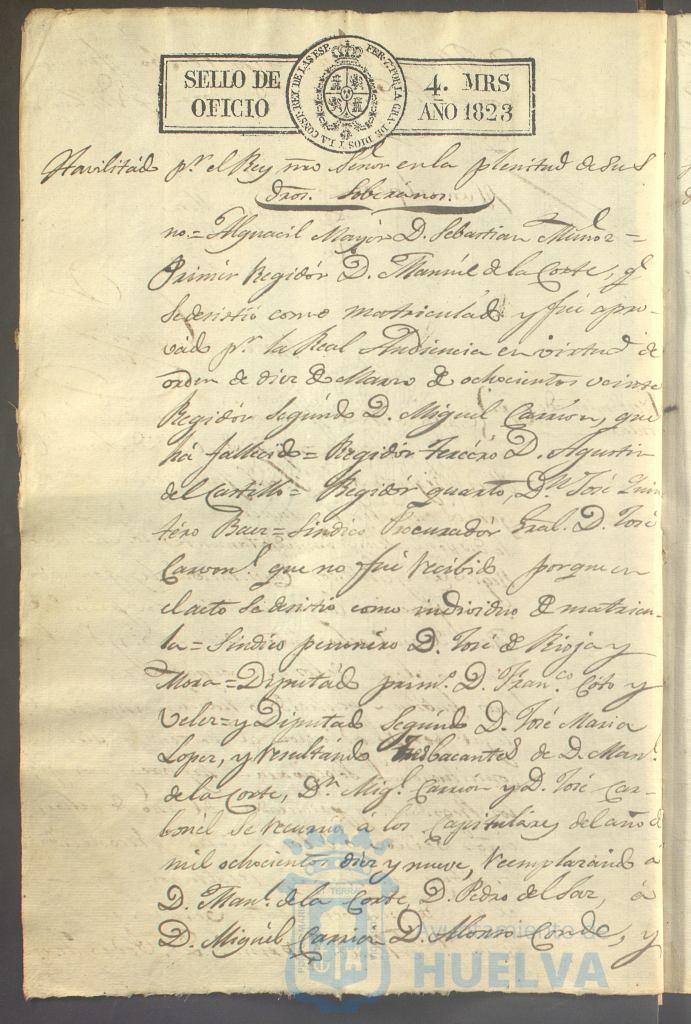 SELLO DE OFICIO
FER. 7.º POR LA GRA. DE DIOS Y LA CONST. REY DE LAS ESP.
4. MRS
AÑO 1823
Havilitado pr. el Rey nro Señor en la plenitud de sus
dros. Soberanos.
no.= Alguacil Mayor D. Sebastian Muñoz=
Primér Regidór D. Manuél de la Corte, qe.
se desistió como matriculado y fué apro-
vado pr. la Real Audiencia en virtud de
orden de diez de Marzo de ochocientos veinte
Regidór Segúndo D. Miguel Carrion, que
há fallecido= Regidór tercéro D. Agustin
del Castillo= Regidór quarto, Dn. José Quin
téro Baez= Síndico Procuradór Gral. D. José
Carvonl. que no fué recibido porque en
el acto se desistió como individuo de matricu-
la= Síndico personéro D. José de Rioja y
Mora= Diputado prim. D. Franco. Coto y
Velez= y Diputado Segúndo D. José Maria
Lopez, y resultándo tres bacantes de D. Manl.
de la Corte, Dn. Migl. Carrion y D. José Car-
bonél se recurra á los Capituláres del año de
mil ochocientos diez y nueve, reemplazándo á
D. Manl. de la Corte, D. Pedro del Saz, á
D. Miguél Carrion D. Alonso Conde, y
Ayuntamiento de
HUELVA